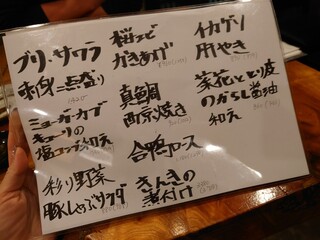 ブリ・サワラ
刺身二点盛り
ミョーガ・カブ
キューリの
塩コンブ和え
彩り野菜
豚しゃぶサラダ
桜エビ
かきあげ
真鯛
西京焼き
合鴨ロース
きんきの
煮付け
イカゲソ
用やき
菜花ととり皮
のからし醤油
和え